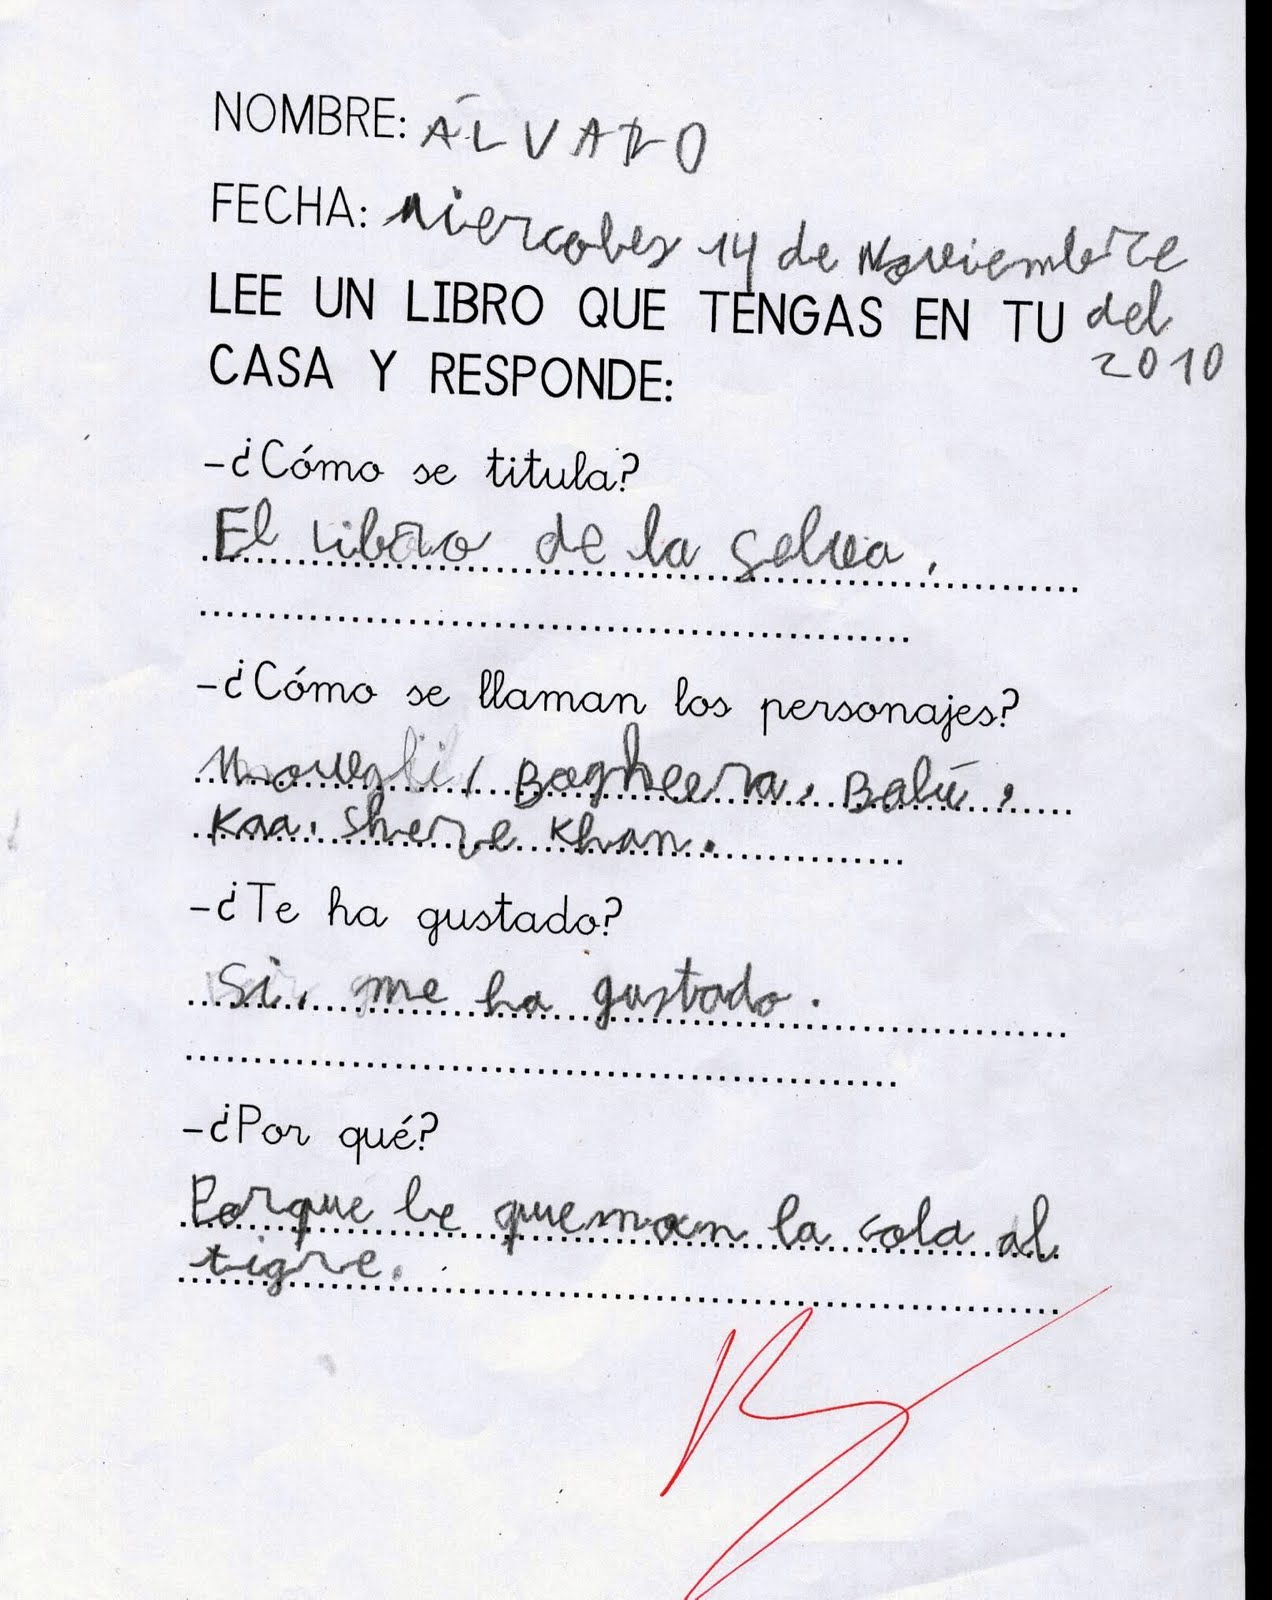 NOMBRE: ÁLVARO
FECHA: Miercoles 14 de Noviembre
LEE UN LIBRO QUE TENGAS EN TU del
CASA Y RESPONDE: 2010
-¿Cómo se titula?
El Libro de la Selva.
-¿Cómo se llaman los personajes?
Mowgli, Bagheera, Balú,
Kaa, Shere Khan.
-¿Te ha gustado?
Si, me ha gustado.
-¿Por qué?
Porque le queman la cola al
tigre.